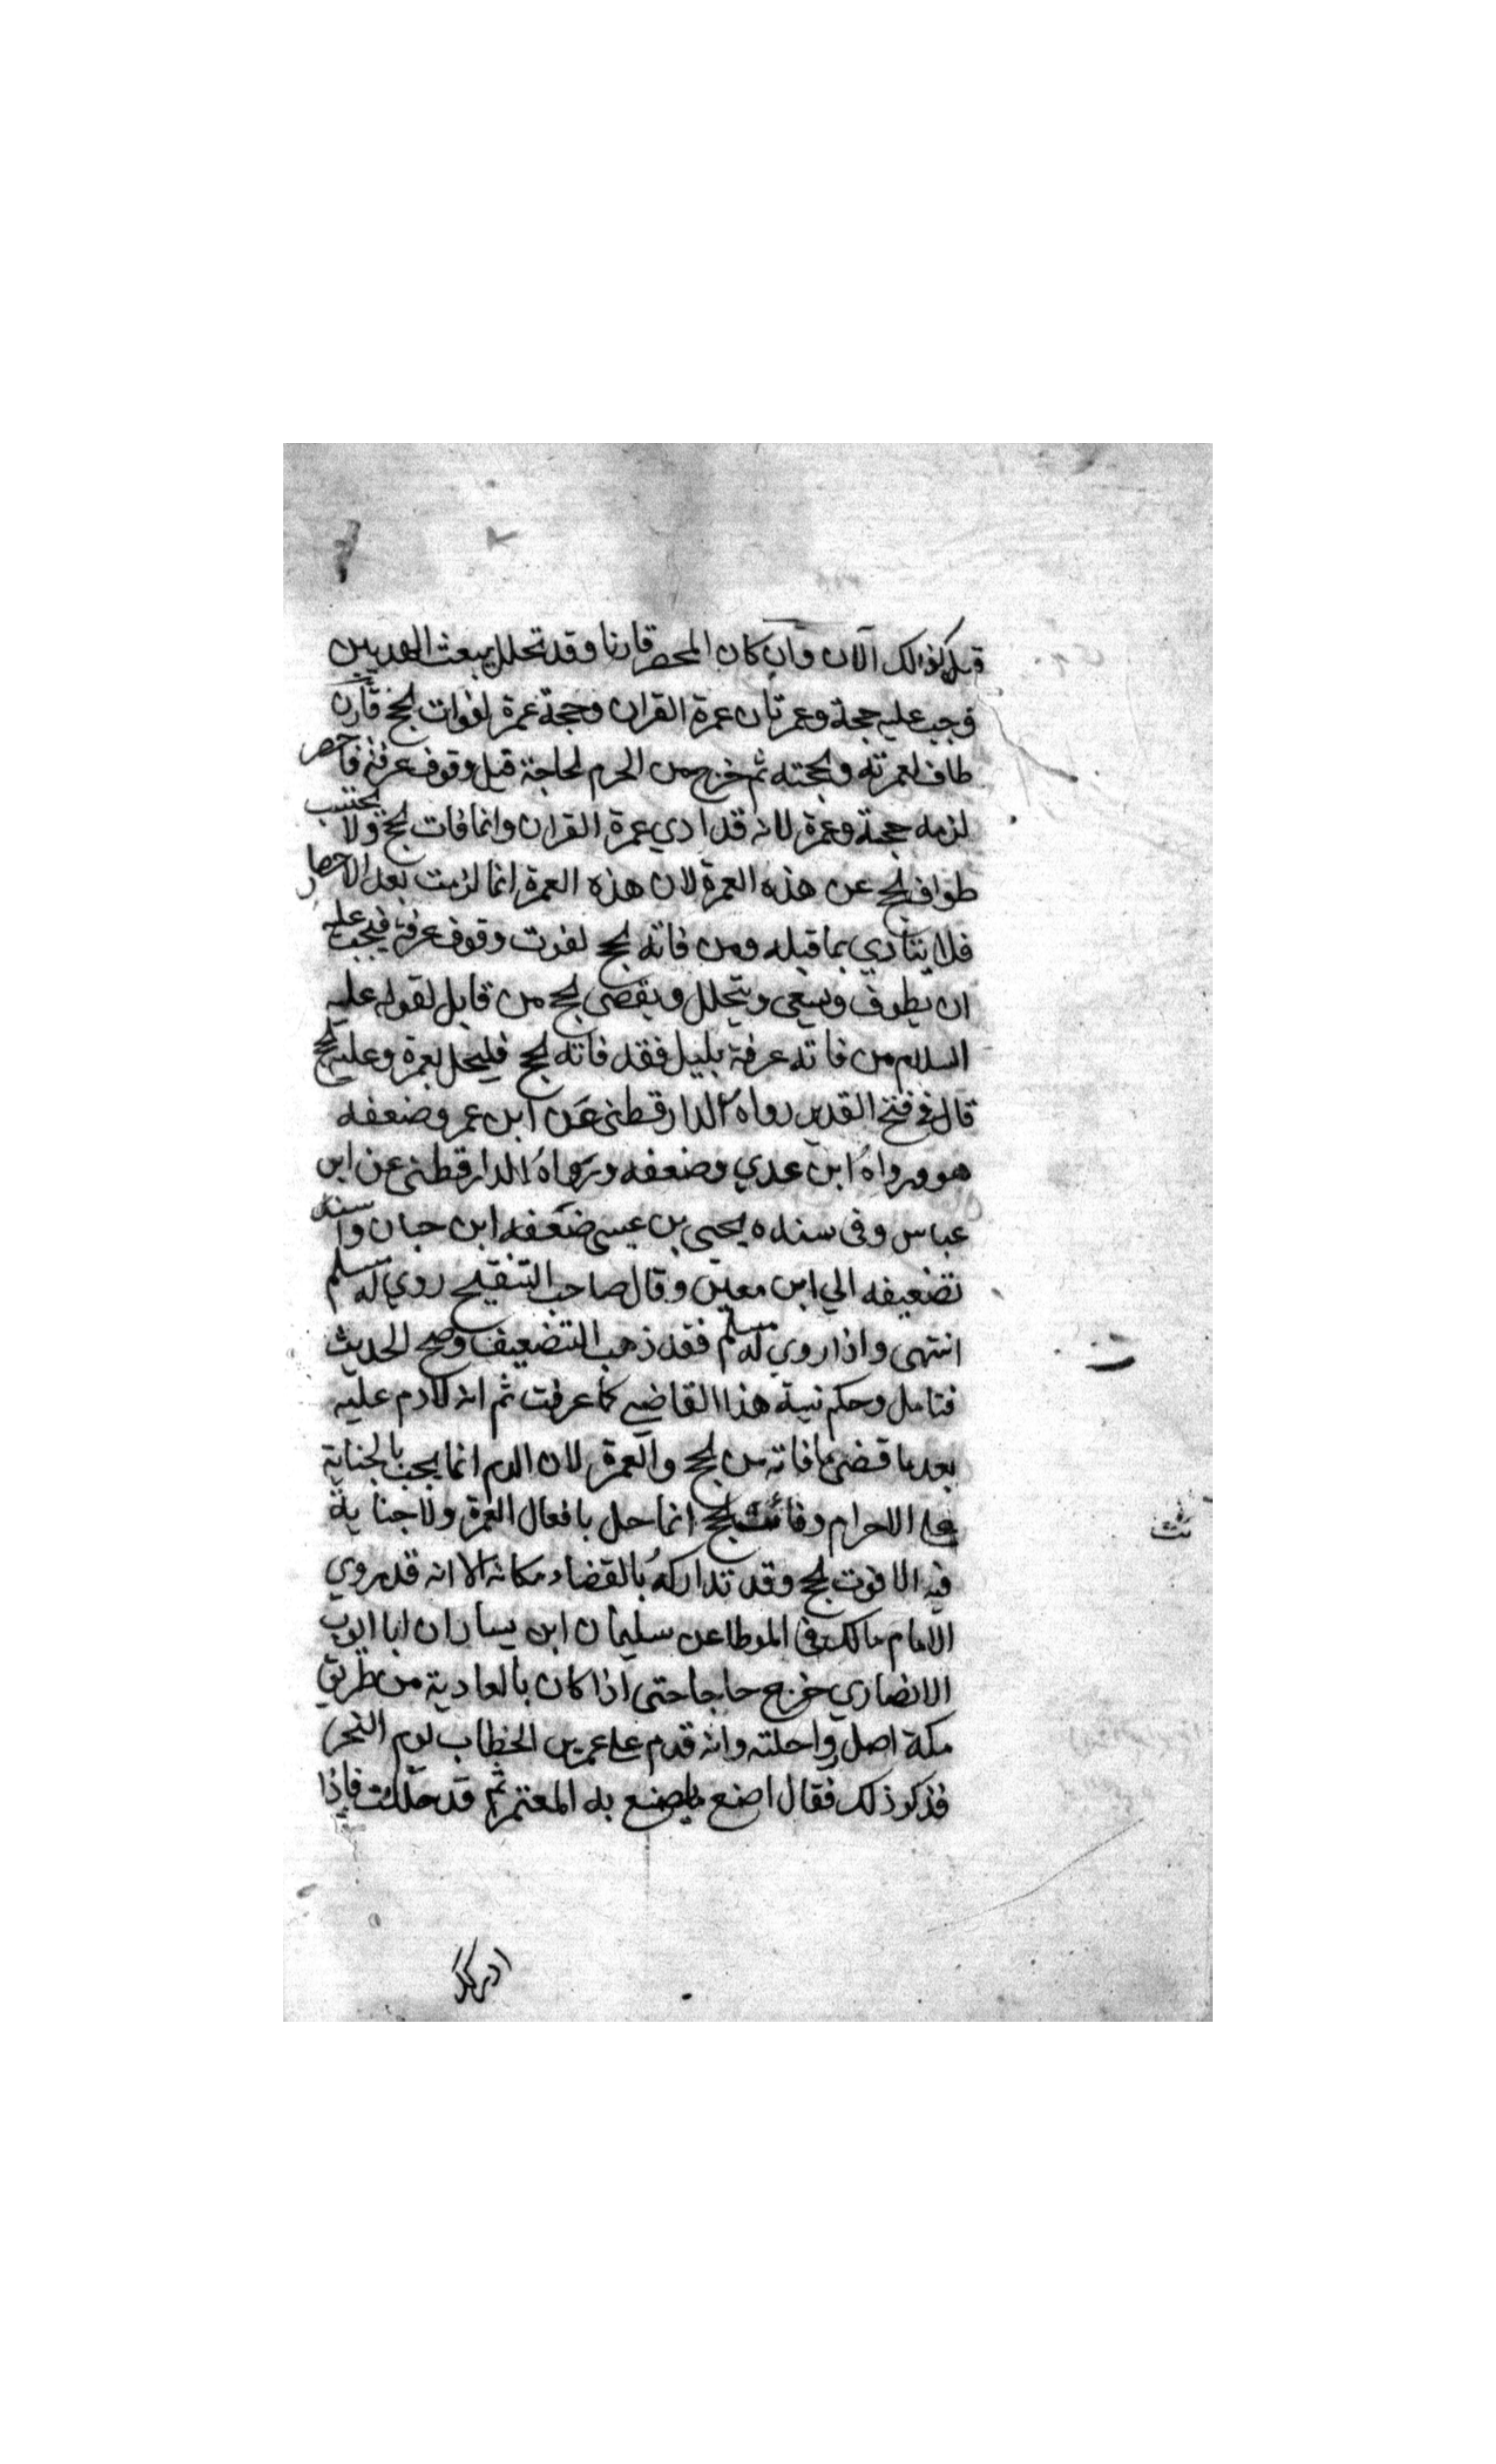 قبل فكذلك الآن وان كان المحصر قارنا وقد تحلل ببعث الهديين
وجب عليه حجة وعمرتان عمرة القران وحجة عمرة لفوات لحج قارن
طاف لعمرته ولحجته ثم خرج من الحرم لحاجة قبل وقوف عرفة فاحصر
لزمه حجة وعمرة لانه قد ادي عمرة القران وانما فات لحج ولا يحتسب
طواف لحج عن هذه العمرة لان هذه العمرة انما لزمت بعد الاحصار
فلا يتادي بما قبله ومن فاته لحج لفوت وقوف عرفة فيجب عليه
ان يطوف ويسعي ويتحلل ويقضي لحج من قابل لقوله عليه
السلام من فاته عرفة بليل فقد فاته لحج فليحل بعمرة وعليه لحج
قال في فتح القدير رواه الدارقطني عن ابن عمر وضعفه
هو ورواه ابن عدي وضعفه ورواه الدارقطني عن ابن
عباس وفي سنده يحيى بن عيسى ضعفه ابن حبان واسند
تضعيفه الي ابن معين وقال صاحب التنقيح روي له مسلم
انتهى واذا روي له مسلم فقد ذهب التضعيف وصح الحديث
فتامل وحكم نية هذا القاضي كما عرفت ثم انه لا دم عليه
بعد ما قضى ما فاته من لحج والعمرة لان الدم انما يجب بالجناية
على الاحرام وفائت لحج انما حل بافعال العمرة ولا جناية
فيه الا فوت لحج وقد تداركه بالقضاء مكانه الا انه قد روي
الامام مالك في الموطا عن سليمان ابن يسار ان ابا ايوب
الانصاري خرج حاجا حتى اذا كان بالعادية من طريق
مكة اصل واحلته وانه قدم على عمر بن الخطاب يوم النحر
فذكر ذلك فقال اصنع ما يصنع به المعتمر ثم قد حللت فاذا
ادركك